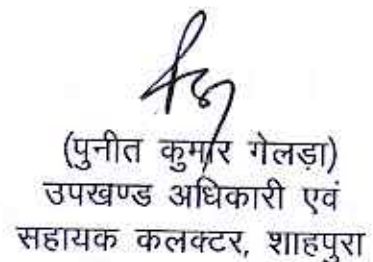 (पुनीत कुमार गेलड़ा)
उपखण्ड अधिकारी एवं
सहायक कलक्टर, शाहपुरा